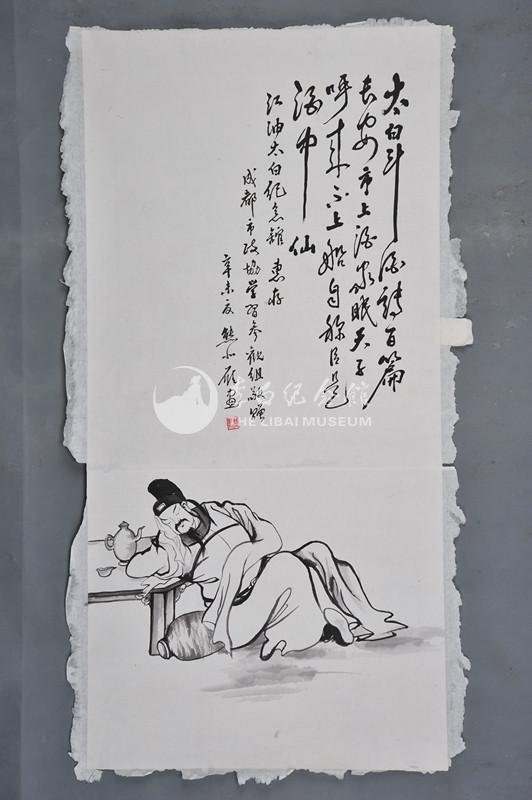 太白斗酒诗百篇
长安市上酒家眠天子
呼来不上船自称臣是
酒中仙
江油太白纪念馆 惠存
成都市政协学习参观组敬赠
辛未夏熊小雁画
李白纪念馆
THE LIBAI MUSEUM